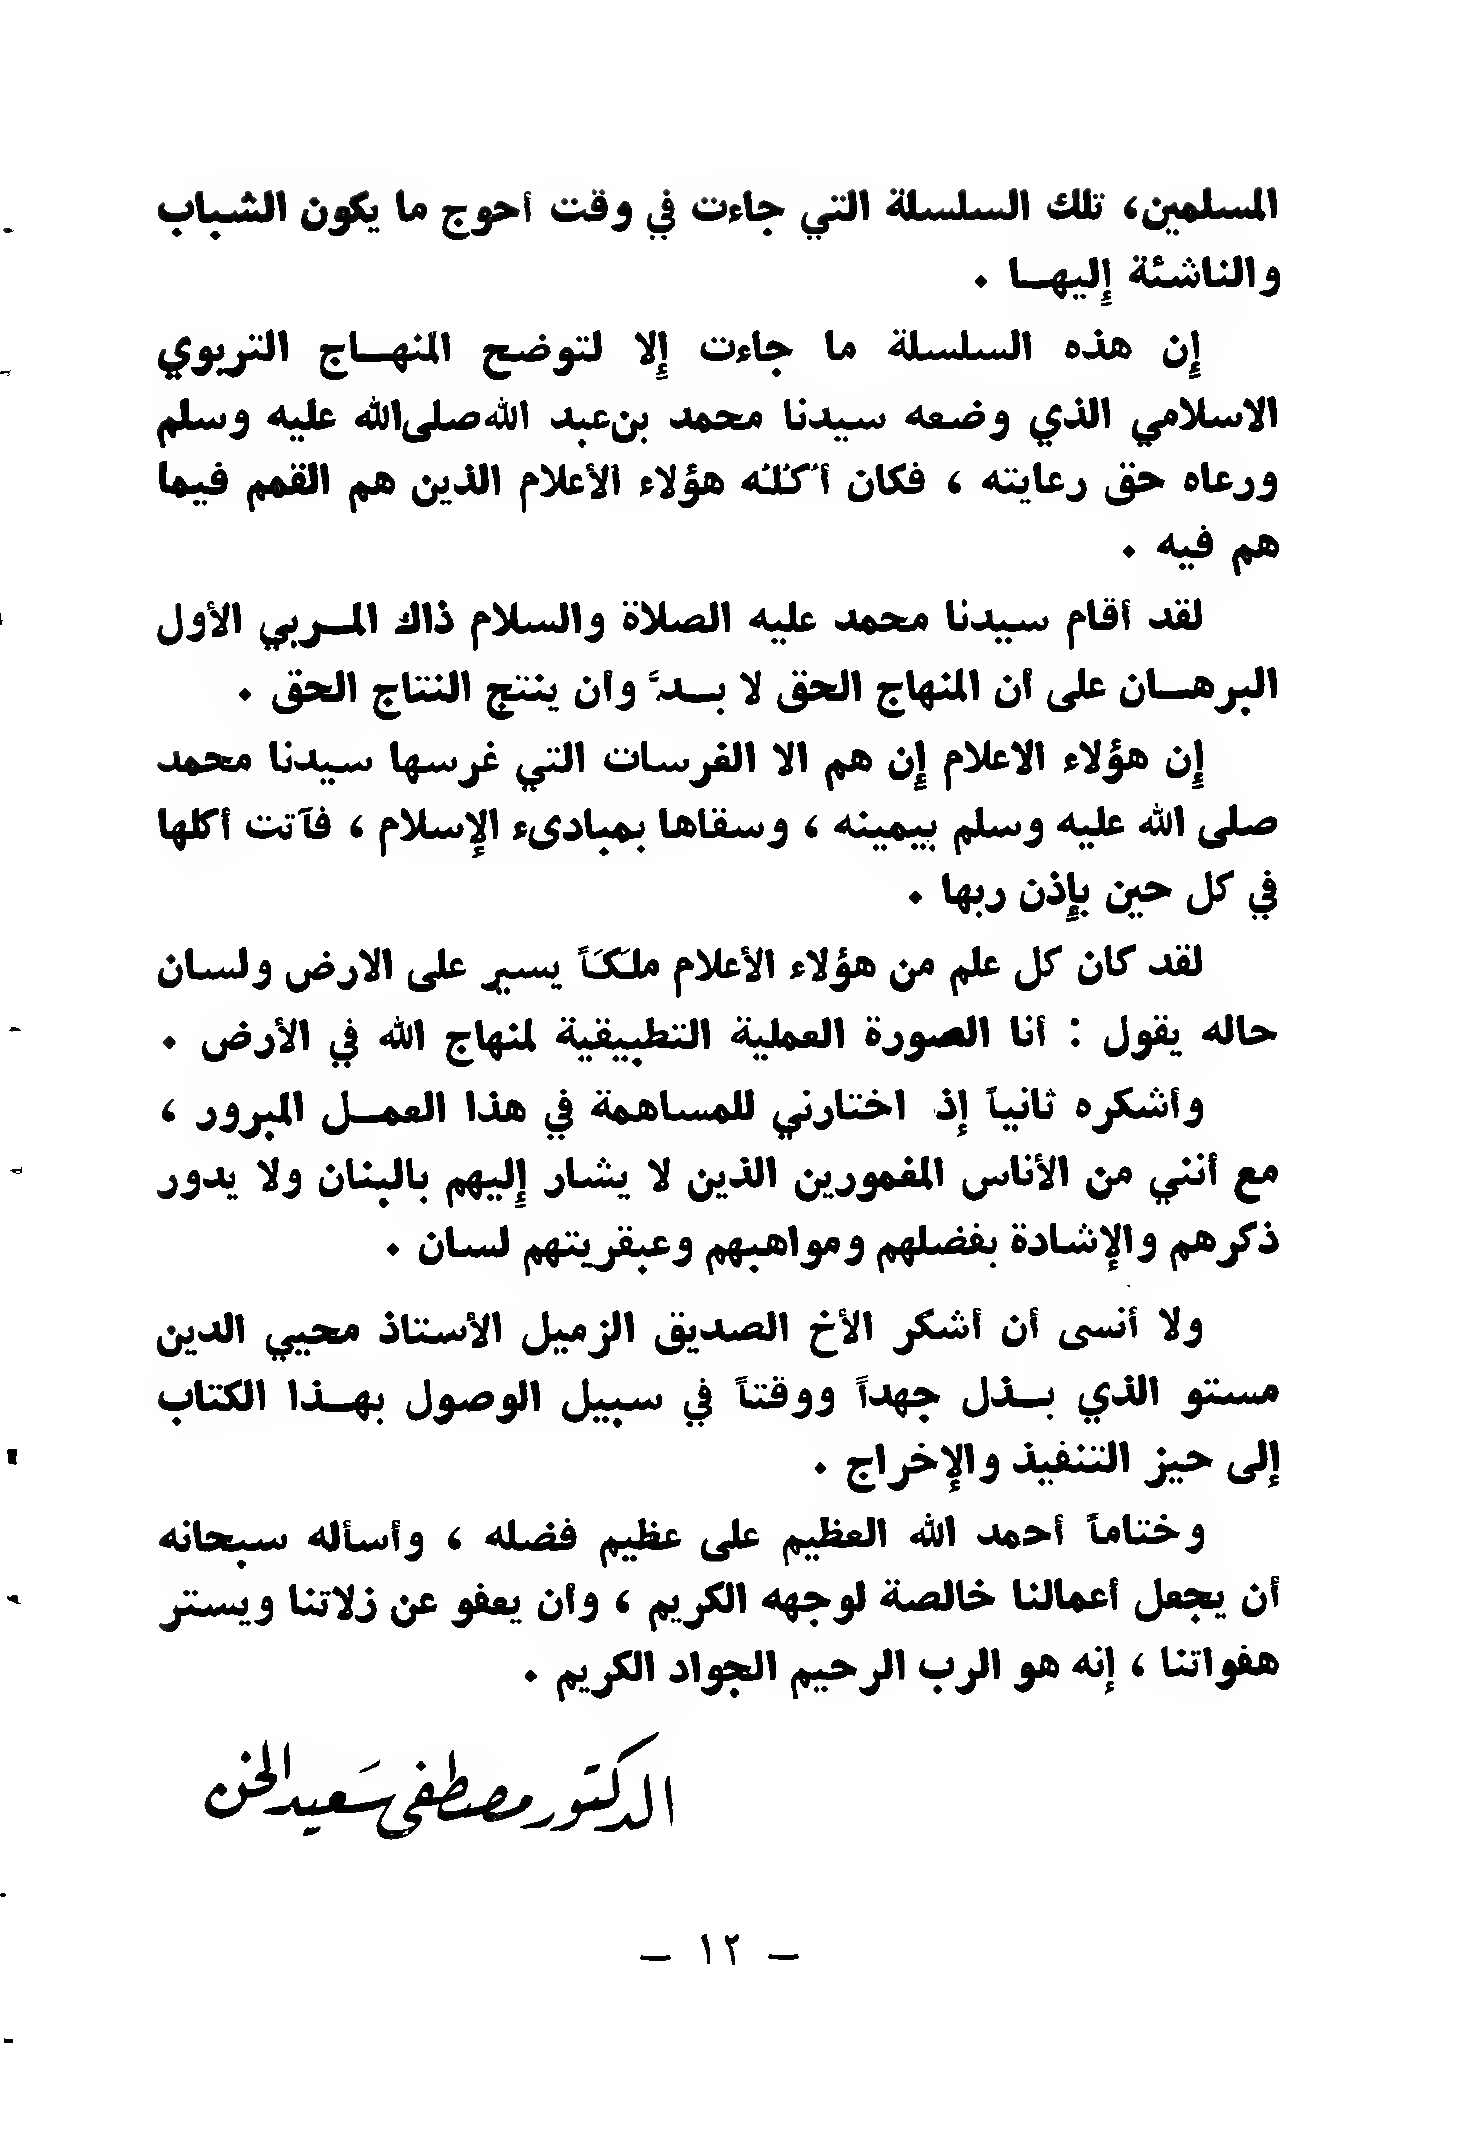 المسلمين، تلك السلسلة التي جاءت في وقت أحوج ما يكون الشباب
والناشئة إليهــا .
إن هذه السلسلة ما جاءت إلا لتوضح المنهــاج التربوي
الاسلامي الذي وضعه سيدنا محمد بن عبد الله صلى الله عليه وسلم
ورعاه حق رعايته ، فكان أُكُلُه هؤلاء الأعلام الذين هم القمم فيما
هم فيه .
لقد أقام سيدنا محمد عليه الصلاة والسلام ذاك المــربي الأول
البرهــان على أن المنهاج الحق لا بــدَّ وأن ينتج النتاج الحق .
إن هؤلاء الاعلام إن هم الا الغرسات التي غرسها سيدنا محمد
صلى الله عليه وسلم بيمينه ، وسقاها بمبادىء الإسلام ، فآتت أكلها
في كل حين بإذن ربها .
لقد كان كل علم من هؤلاء الأعلام ملَكَاً يسير على الارض ولسان
حاله يقول : أنا الصورة العملية التطبيقية لمنهاج الله في الأرض .
وأشكره ثانياً إذ اختارني للمساهمة في هذا العمــل المبرور ،
مع أنني من الأناس المغمورين الذين لا يشار إليهم بالبنان ولا يدور
ذكرهم والإشادة بفضلهم ومواهبهم وعبقريتهم لسان .
ولا أنسى أن أشكر الأخ الصديق الزميل الأستاذ محيي الدين
مستو الذي بــذل جهداً ووقتاً في سبيل الوصول بهــذا الكتاب
إلى حيز التنفيذ والإخراج .
وختاماً أحمد الله العظيم على عظيم فضله ، وأسأله سبحانه
أن يجعل أعمالنا خالصة لوجهه الكريم ، وأن يعفو عن زلاتنا ويستر
هفواتنا ، إنه هو الرب الرحيم الجواد الكريم .
الدكتور مصطفى سَعيد الخن
– ١٢ –